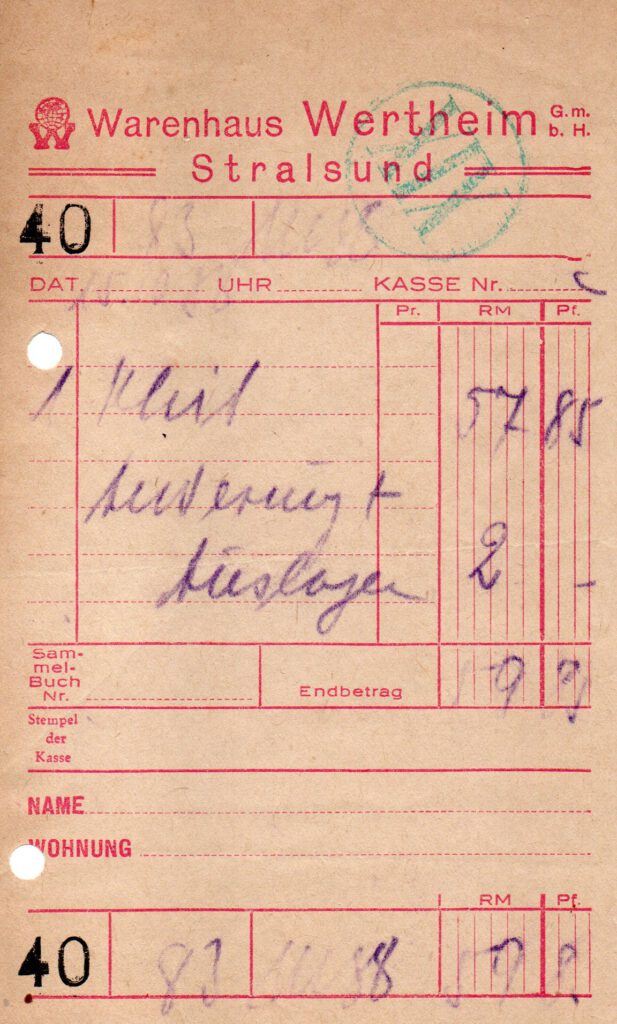 Warenhaus Wertheim G.m.b.H.
Stralsund
40 83
DAT. UHR KASSE Nr.
Pr. RM Pf.
1 Kleid 57 85
Änderung +
Auslagen 2 -
Sam-
mel-
Buch
Nr.
Endbetrag 59 85
Stempel
der
Kasse
NAME
WOHNUNG
RM Pf.
40 83 59